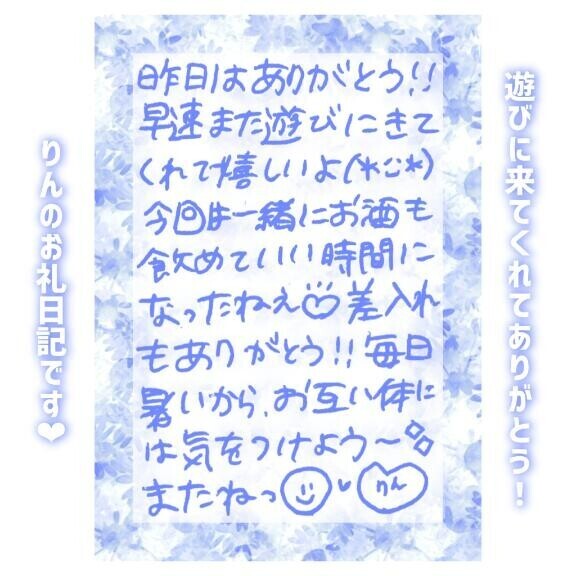 遊びに来てくれてありがとう!
昨日はありがとう!!
早速また遊びにきて
くれて嬉しいよ(*¨*)
今回は一緒にお酒も
飲めていい時間に
なったねぇ 差入れ
もありがとう!! 毎日
暑いから、お互い体に
は気をつけよう〜
またねっ りん
りんのお礼日記です❤